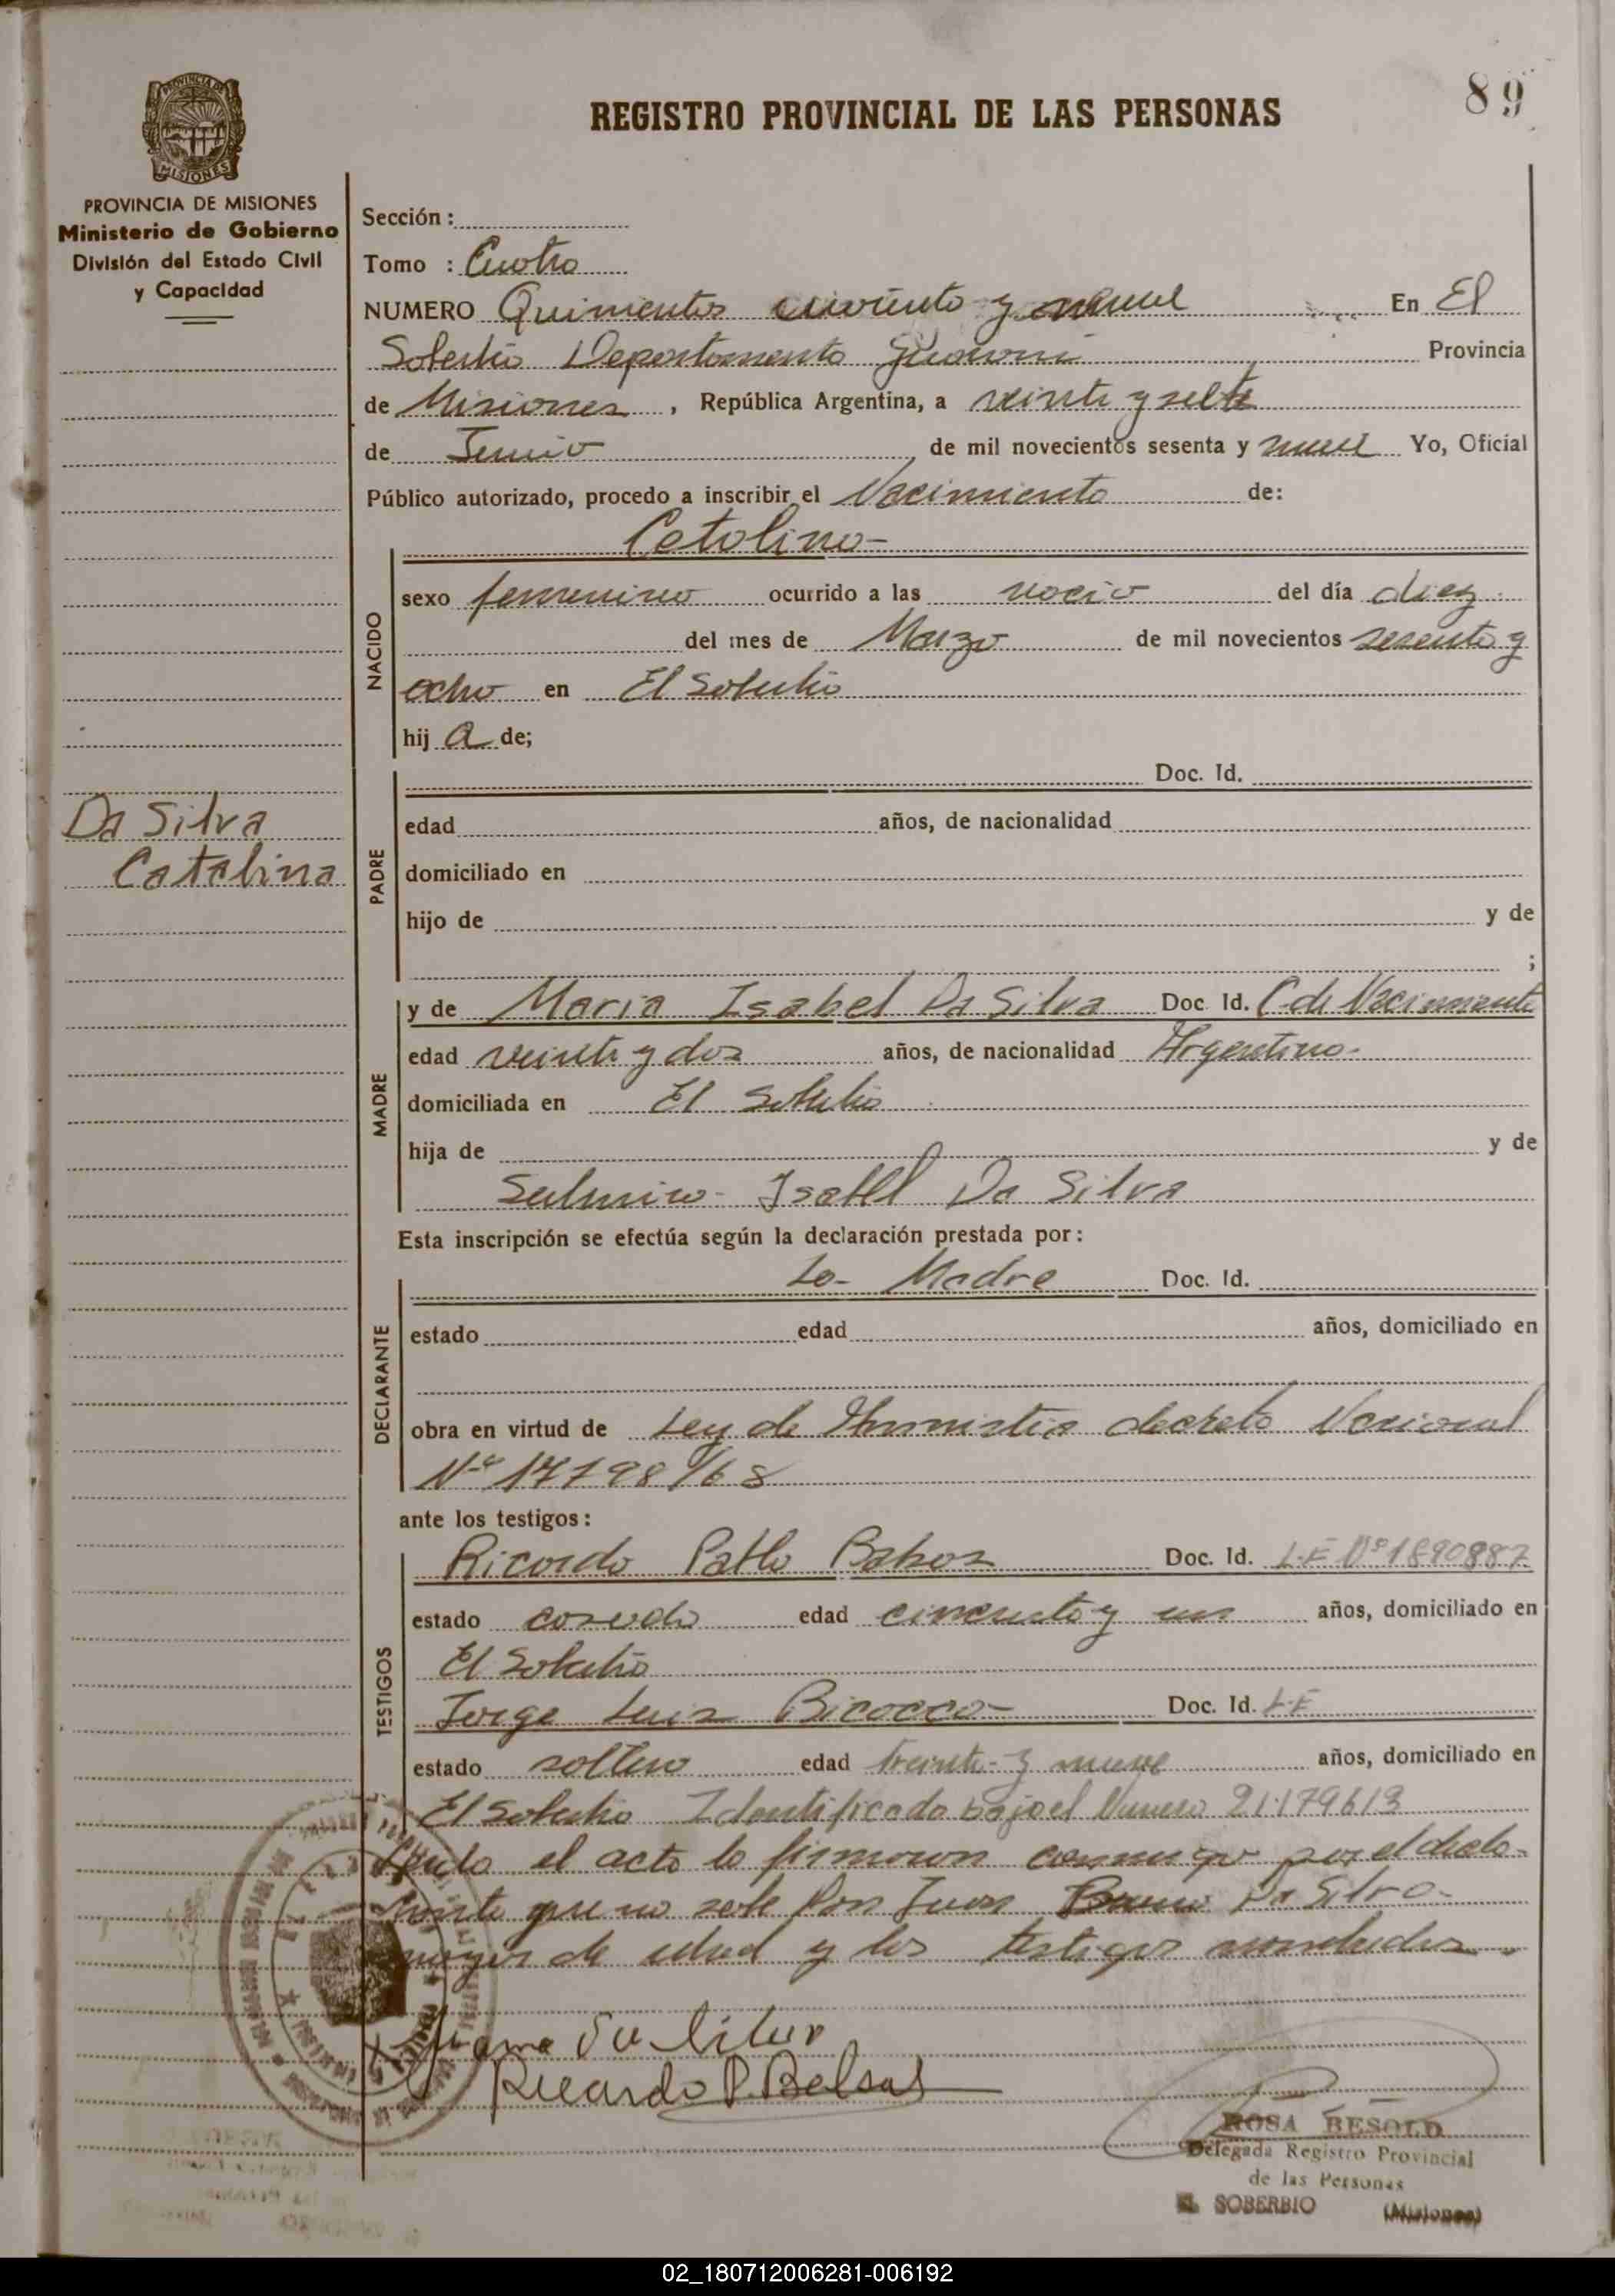 89
REGISTRO PROVINCIAL DE LAS PERSONAS
MISIONES
PROVINCIA DE MISIONES
Ministerio de Gobierno
División del Estado Civil
y Capacidad
Sección :
Tomo : Cuatro
NUMERO Quinientos cuarenta y nueve En El
Soberbio Departamento Guaraní Provincia
de Misiones , República Argentina, a veinte y siete
de Junio de mil novecientos sesenta y nueve Yo, Oficial
Público autorizado, procedo a inscribir el Nacimiento de:
Catalina-
NACIDO
sexo femenino ocurrido a las del día diez
del mes de Marzo de mil novecientos sesenta y
ocho en El Soberbio
hij a de;
Da Silva
Catalina
PADRE
Doc. Id.
edad años, de nacionalidad
domiciliado en
hijo de y de
;
MADRE
y de Maria Isabel Da Silva Doc. Id. C. de Nacimiento
edad veinte y dos años, de nacionalidad Argentina-
domiciliada en El Soberbio
hija de y de
Isabel Da Silva
Esta inscripción se efectúa según la declaración prestada por :
La Madre Doc. Id.
DECLARANTE
estado edad años, domiciliado en
obra en virtud de Ley de Amnistia decreto Nacional
Nº 17798/68
ante los testigos :
TESTIGOS
Ricardo Pablo Doc. Id. L.E Nº 1890887
estado casado edad cincuenta y un años, domiciliado en
El Soberbio
Jorge Luis Bicocca- Doc. Id. L.E
estado soltero edad treinta y nueve años, domiciliado en
El Soberbio Identificado bajo el Numero
el acta la firmaron conmigo por el decla-
rante que no sabe Don Juan Da Silva-
mayor de edad y los testigos nombrados
Ricardo P.
ROSA BESOLD
Delegada Registro Provincial
de las Personas
EL SOBERBIO (Misiones)
02_180712006281-006192